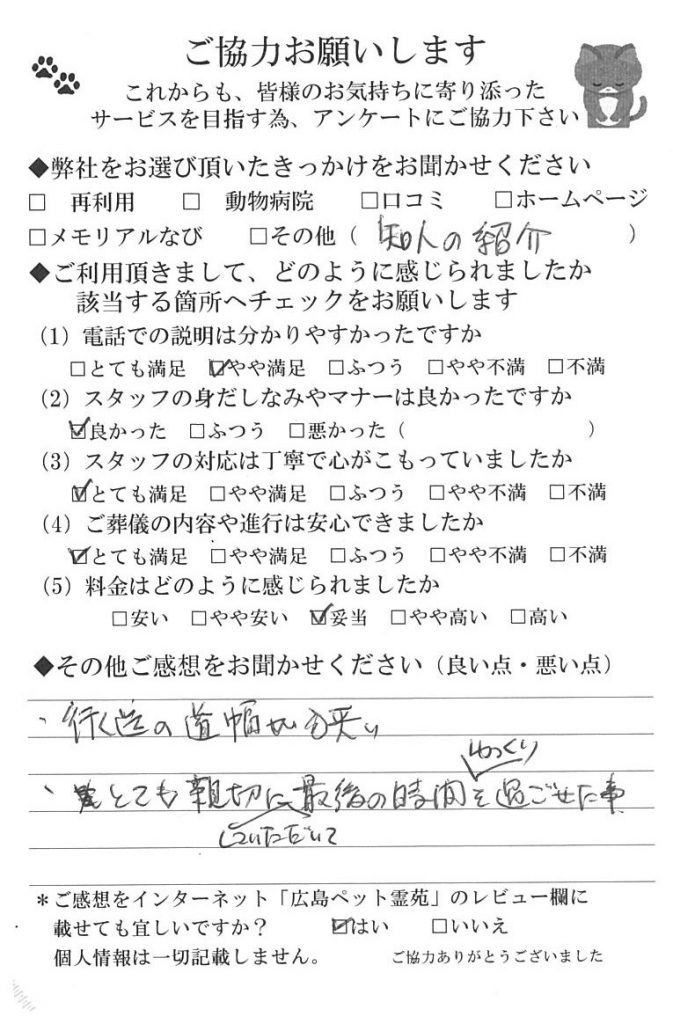 ご協力お願いします
これからも、皆様のお気持ちに寄り添った
サービスを目指す為、アンケートにご協力下さい
◆弊社をお選び頂いたきっかけをお聞かせください
□ 再利用 □ 動物病院 □口コミ □ホームページ
□メモリアルなび □その他（ 知人の紹介 ）
◆ご利用頂きまして、どのように感じられましたか
該当する箇所へチェックをお願いします
（1）電話での説明は分かりやすかったですか
□とても満足 ☑やや満足 □ふつう □やや不満 □不満
（2）スタッフの身だしなみやマナーは良かったですか
☑良かった □ふつう □悪かった（ ）
（3）スタッフの対応は丁寧で心がこもっていましたか
☑とても満足 □やや満足 □ふつう □やや不満 □不満
（4）ご葬儀の内容や進行は安心できましたか
☑とても満足 □やや満足 □ふつう □やや不満 □不満
（5）料金はどのように感じられましたか
□安い □やや安い ☑妥当 □やや高い □高い
◆その他ご感想をお聞かせください（良い点・悪い点）
、行く迄の道幅が狭い
ゆっくり
、とても親切に最後の時間を過ごせた事
していただいて
＊ご感想をインターネット「広島ペット霊苑」のレビュー欄に
載せても宜しいですか？ ☑はい □いいえ
個人情報は一切記載しません。 ご協力ありがとうございました